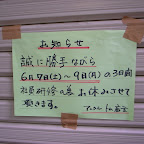 お知らせ
誠に勝手ながら
6月7日(土)～9日(月)の3日間
社員研修の為お休みさせて
頂きます。
店主